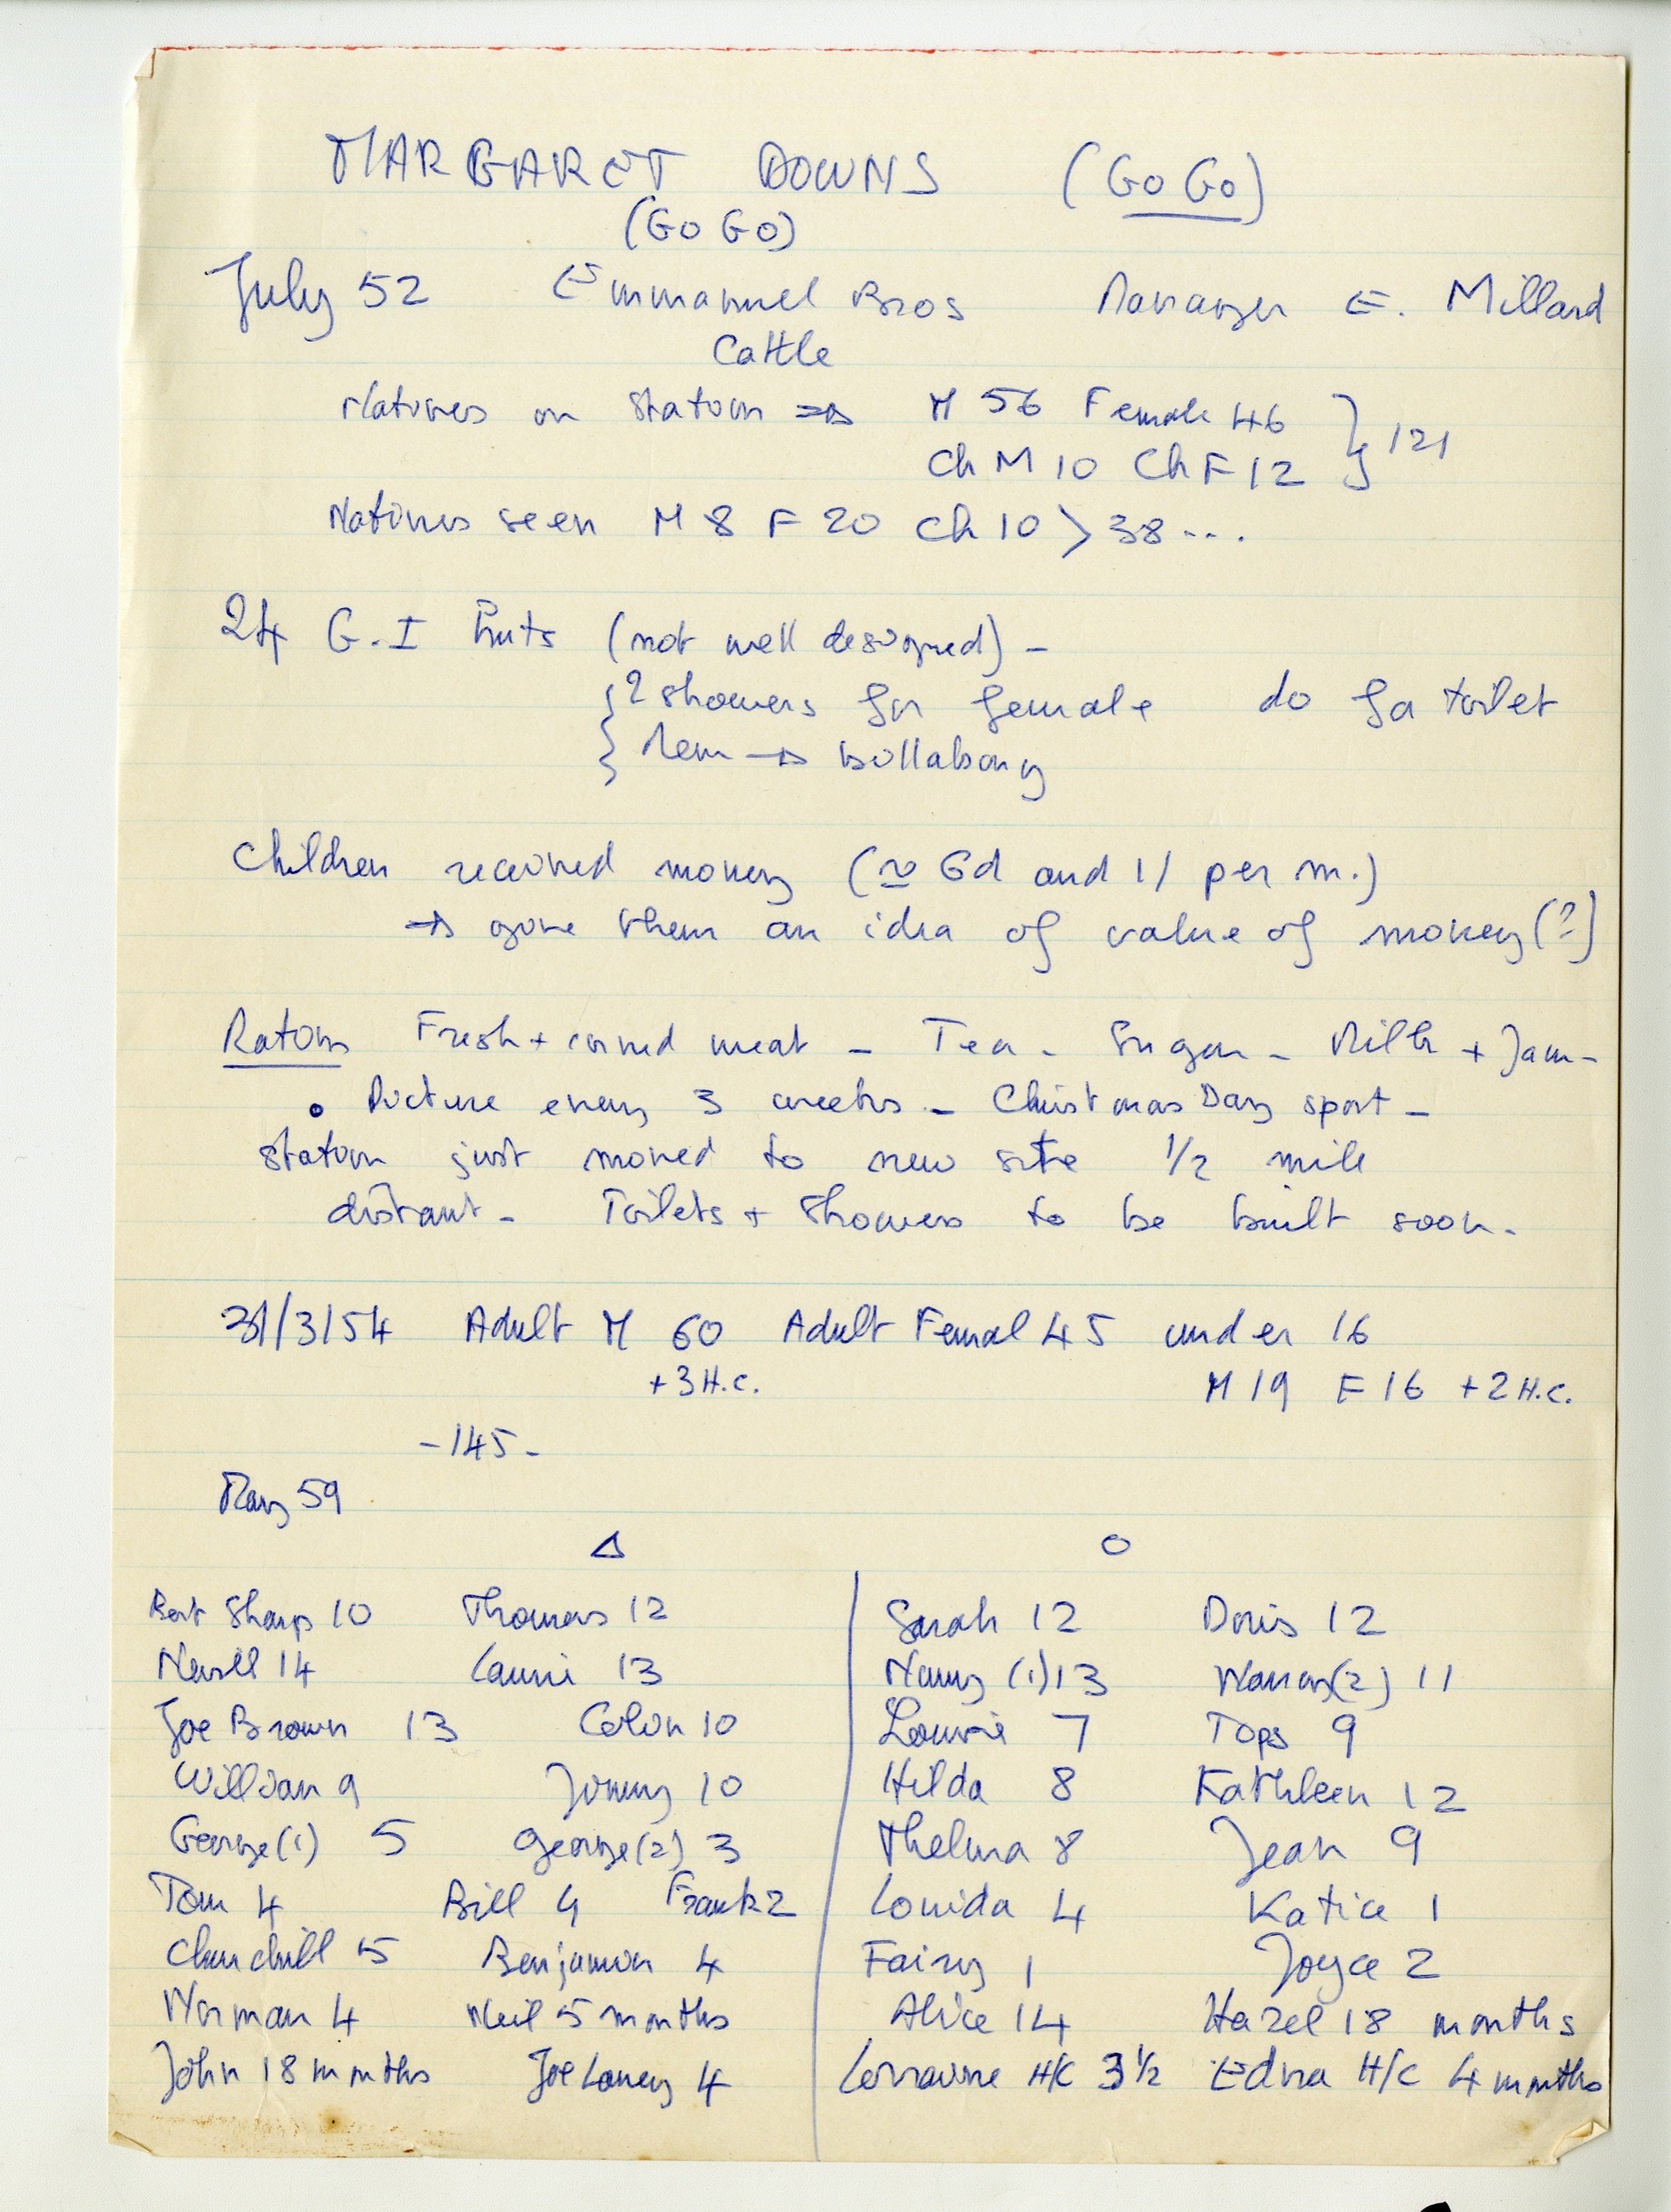 MARGARET DOWNS (GO GO)
(GO GO)
July 52 Emmanuel Bros Manager E. Millard
Cattle
Natives on station → M 56 Female 46 } 121
Ch M 10 Ch F 12
Natives seen M 8 F 20 Ch 10 > 38...
24 G.I huts (not well designed) -
{ 2 showers for female do for toilet
{ Men → billabong
Children received money (≃ 6d and 1/ per m.)
→ give them an idea of value of money (?)
Rations Fresh + corned meat - Tea - Sugar - Milk + Jam -
• Picture every 3 weeks - Christmas Day sport -
Station just moved to new site 1/2 mile
distant - Toilets + Showers to be built soon.
31/3/54 Adult M 60 Adult Femal 45 under 16
+3 H.C. M 19 F 16 +2 H.C.
- 145 -
May 59
△ ○
Bert Sharp 10 Thomas 12 Sarah 12 Doris 12
Nevill 14 Laurie 13 Nancy (1) 13 Nancy (2) 11
Joe Brown 13 Colin 10 Louisie 7 Tops 9
William 9 Jimmy 10 Hilda 8 Kathleen 12
George (1) 5 George (2) 3 Thelma 8 Jean 9
Tom 4 Bill 4 Frank 2 Louida 4 Katice 1
Churchill 5 Benjamin 4 Fairy 1 Joyce 2
Norman 4 Neil 5 months Alice 14 Hazel 18 months
John 18 months Joe Laney 4 Lorraine H/C 3 1/2 Edna H/C 4 months